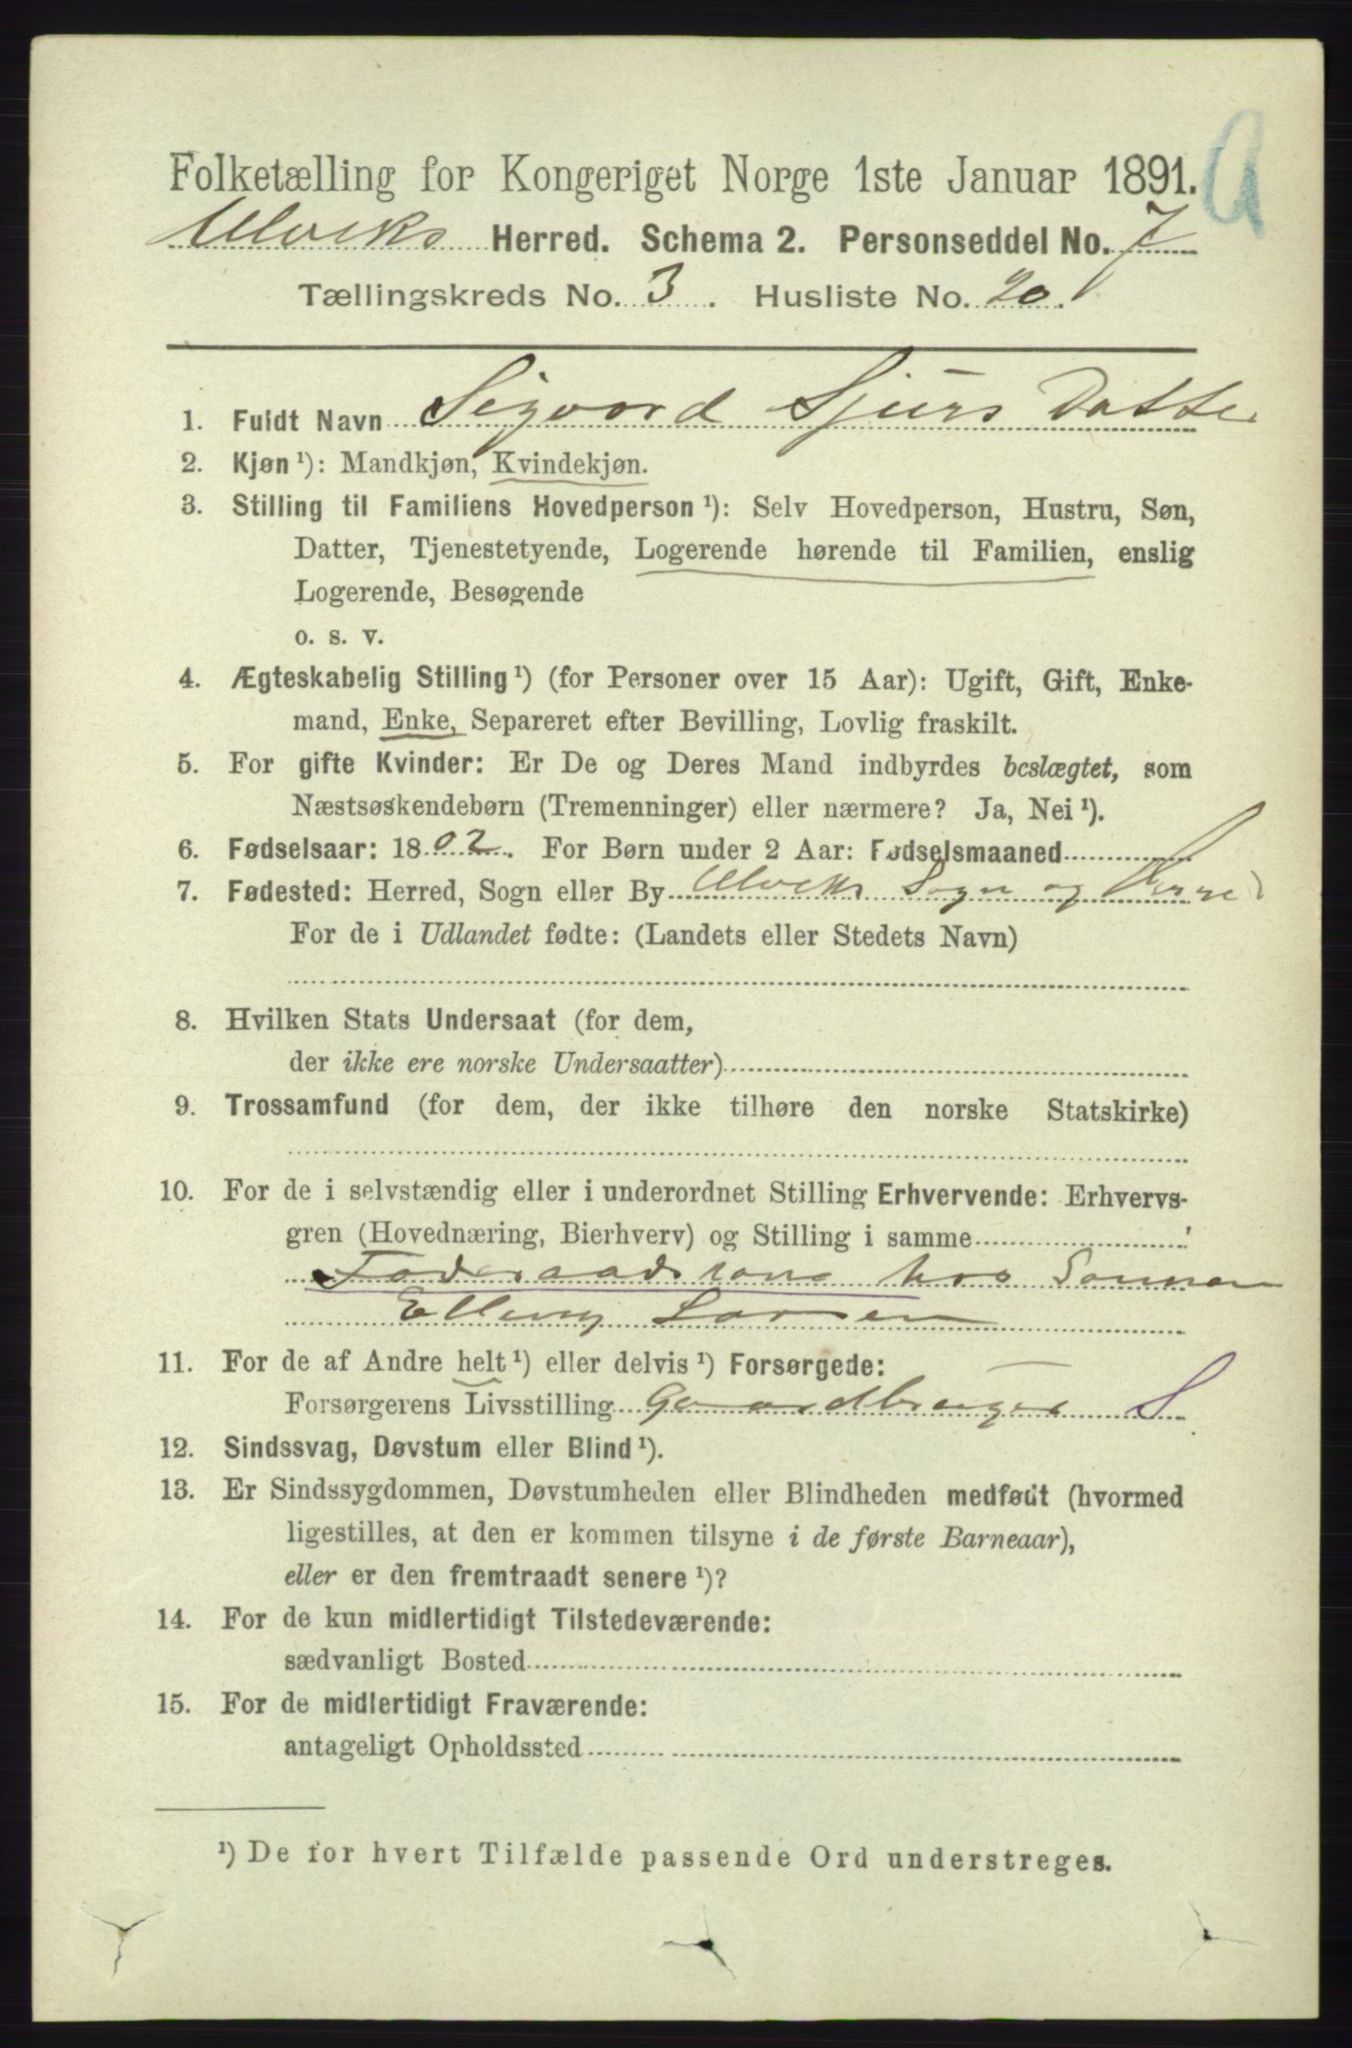 Folketælling for Kongeriget Norge 1ste Januar 1891.
Ulviks Herred. Schema 2. Personseddel No. 7
Tællingskreds No. 3. Husliste No. 20.
1. Fuldt Navn Sigvord Sjurs Datter
2. Kjøn ¹): Mandkjøn, Kvindekjøn.
3. Stilling til Familiens Hovedperson ¹): Selv Hovedperson, Hustru, Søn,
Datter, Tjenestetyende, Logerende hørende til Familien, enslig
Logerende, Besøgende
o. s. v.
4. Ægteskabelig Stilling ¹) (for Personer over 15 Aar): Ugift, Gift, Enke-
mand, Enke, Separeret efter Bevilling, Lovlig fraskilt.
5. For gifte Kvinder: Er De og Deres Mand indbyrdes beslægtet, som
Næstsøskendebørn (Tremenninger) eller nærmere? Ja, Nei ¹).
6. Fødselsaar: 1802. For Børn under 2 Aar: Fødselsmaaned
7. Fødested: Herred, Sogn eller By Ulviks Sogn og Herred
For de i Udlandet fødte: (Landets eller Stedets Navn)
8. Hvilken Stats Undersaat (for dem,
der ikke ere norske Undersaatter)
9. Trossamfund (for dem, der ikke tilhøre den norske Statskirke)
10. For de i selvstændig eller i underordnet Stilling Erhvervende: Erhvervs-
gren (Hovednæring, Bierhverv) og Stilling i samme
Føderaadskone hos Sønnen
Elling Larsen
11. For de af Andre helt ¹) eller delvis ¹) Forsørgede:
Forsørgerens Livsstilling Gaardbruger S
12. Sindssvag, Døvstum eller Blind ¹).
13. Er Sindssygdommen, Døvstumheden eller Blindheden medfødt (hvormed
ligestilles, at den er kommen tilsyne i de første Barneaar),
eller er den fremtraadt senere ¹)?
14. For de kun midlertidigt Tilstedeværende:
sædvanligt Bosted
15. For de midlertidigt Fraværende:
antageligt Opholdssted
¹) De for hvert Tilfælde passende Ord understreges.